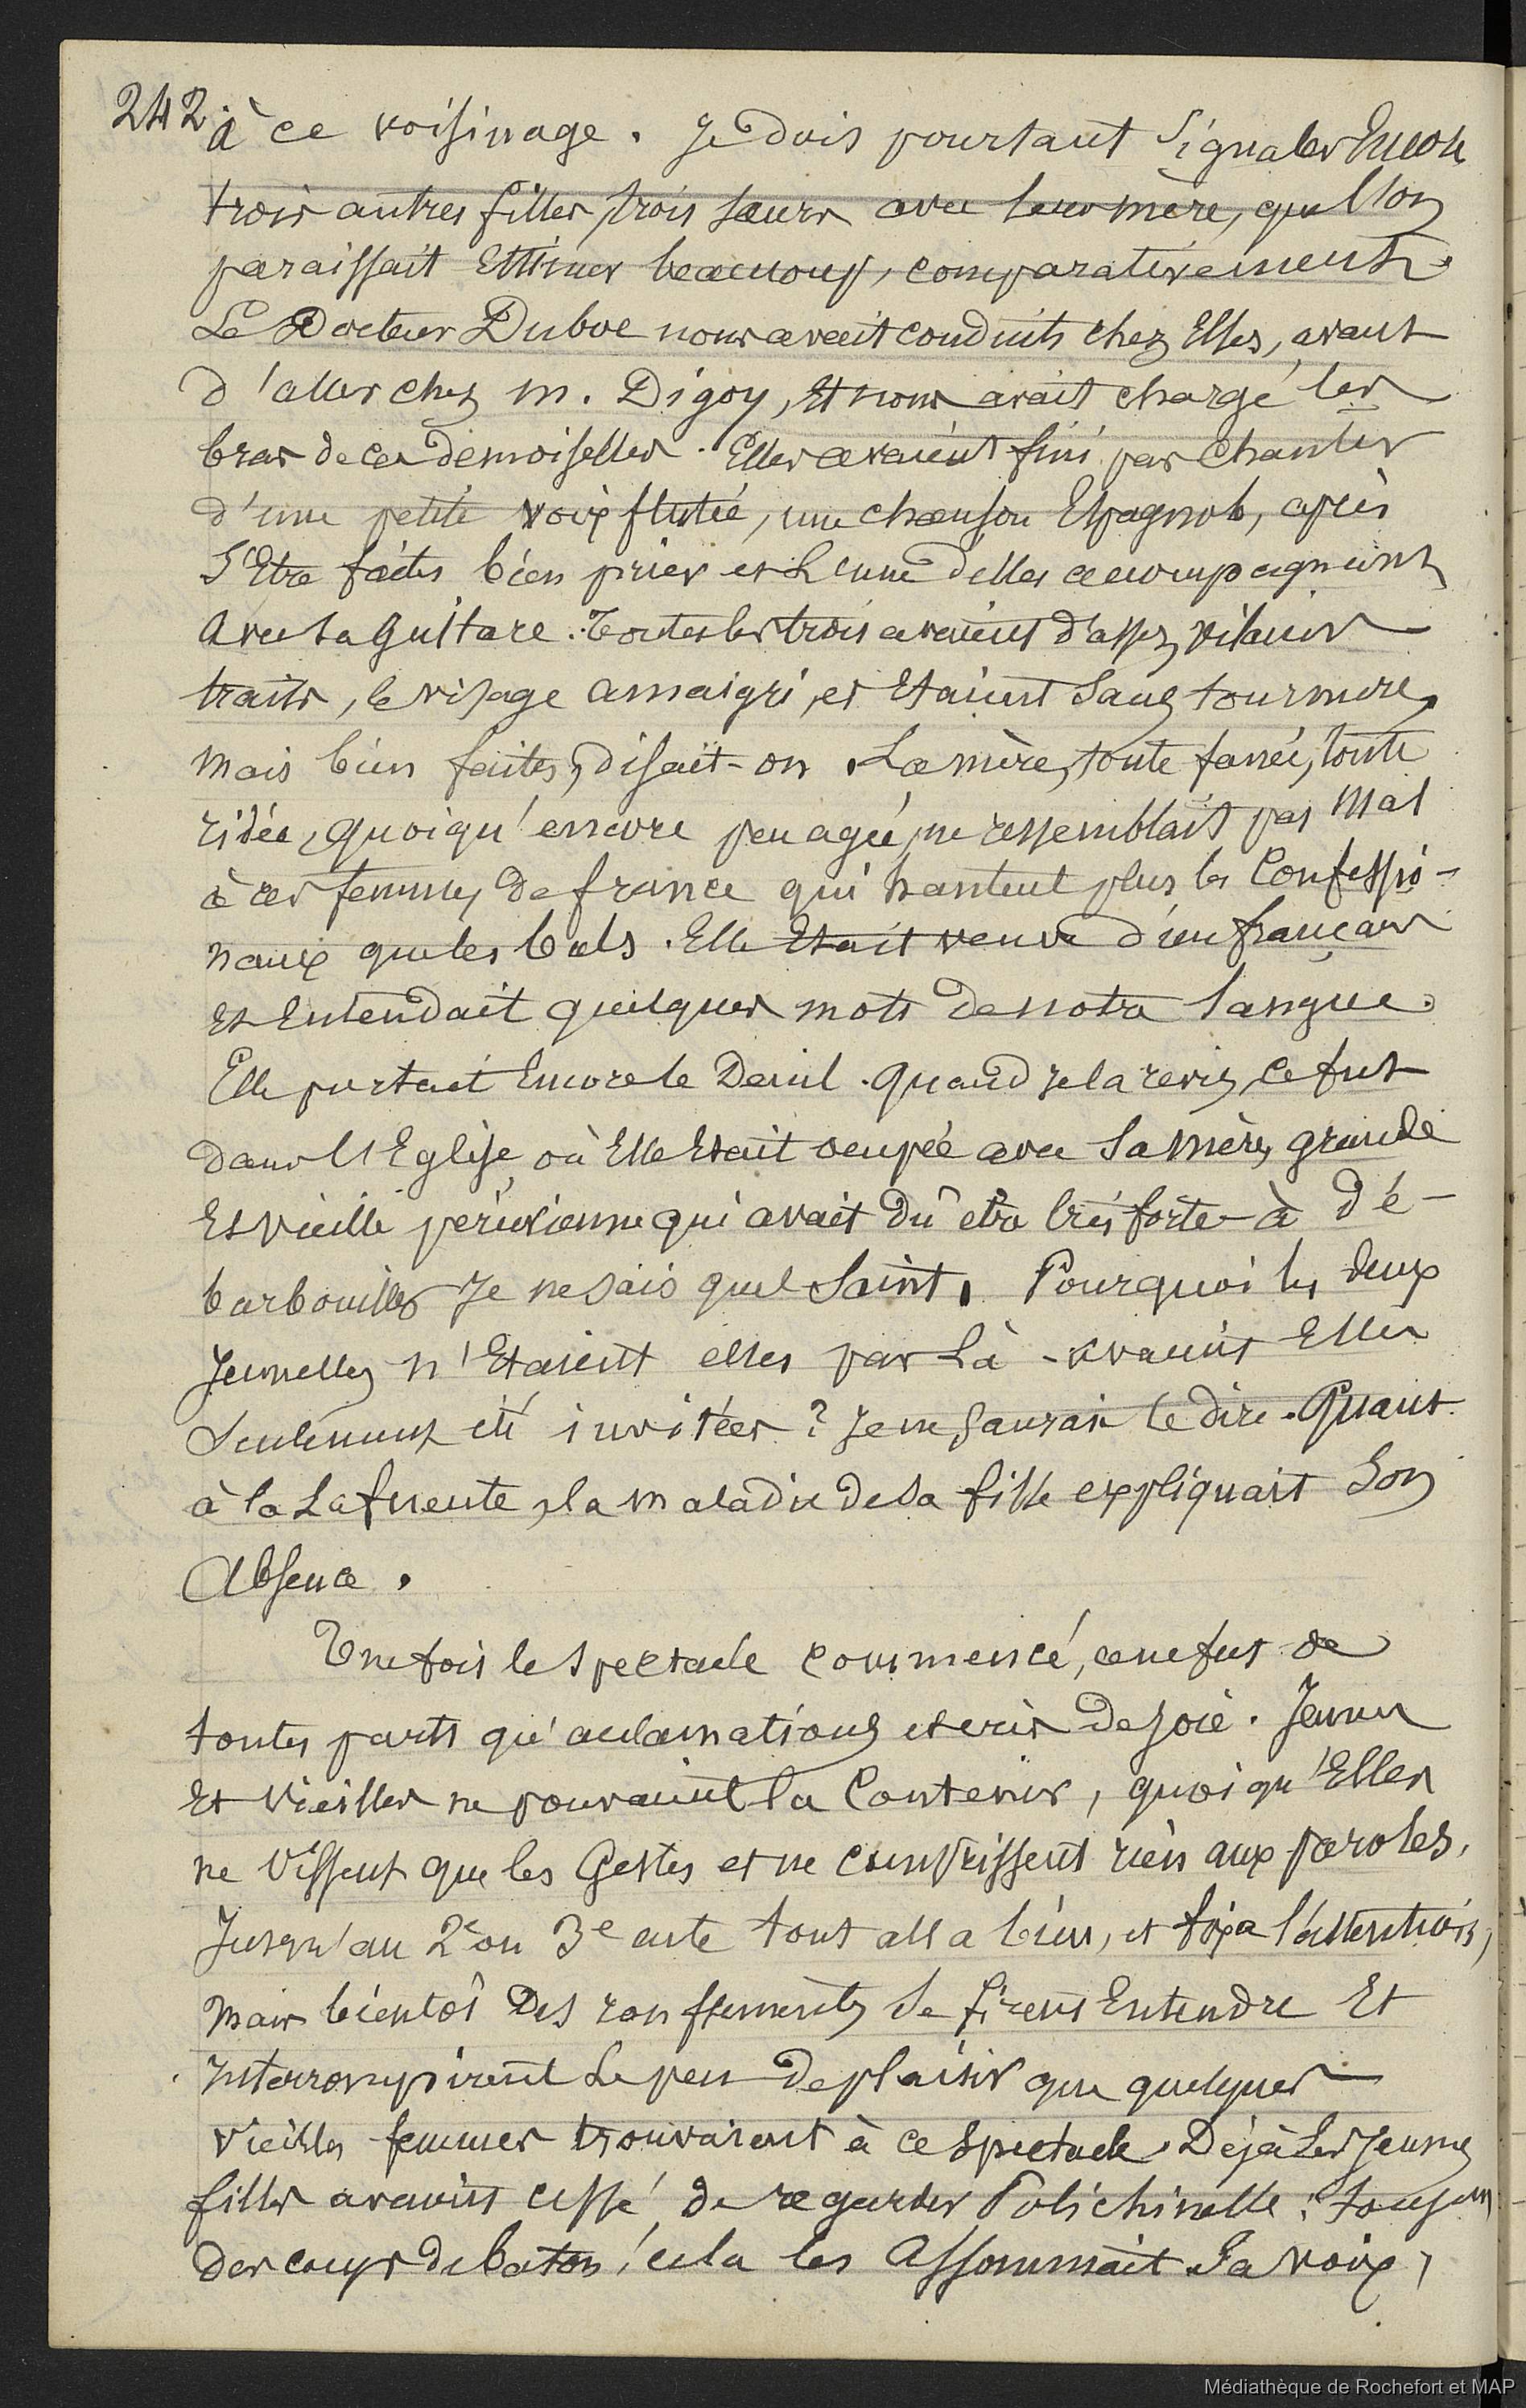 242. à ce voisinage. Je dois pourtant signaler Encore
trois autres filles, trois sœurs avec leur mère, que l'on
paraissait Estimer beaucoup, comparativement.
Le Docteur Duboe nous avait conduits chez Elles, avant
d'aller chez M. Digoy, et nous avait chargé les
bras de ces demoiselles. Elles avaient fini par chanter
d'une petite voix flutée, une chanson Espagnole, après
s'Etre faites bien prier et l'une d'elles accompagnant
avec sa Guitare. Toutes les trois avaient d'assez vilains
traits, le visage amaigri, et Etaient sans tournure,
mais bien faites, disait-on. La mère, toute fanée, toute
ridée, quoiqu'encore peu agée, ne ressemblait pas mal
à ces femmes de france qui hantent plus les Confessio-
naux que les bals. Elle Etait veuve d'un français
et Entendait quelques mots de notre langue.
Elle portait Encore le Deuil. quand je la revis, ce fut
dans l'Eglise, où Elle Etait occupée avec sa mère, grande
Et vieille péruvienne qui avait dû etre très forte à dé-
barbouiller Je ne sais quel Saint. Pourquoi les deux
Jumelles n'Etaient elles pas là - avaient Elles
seulement été invitées ? Je ne saurais le dire. Quant
à la Lafuente, la maladie de sa fille expliquait son
Absence.
Une fois le spectacle commencé, ce ne fut de
toutes parts qu'acclamations et cris de joie. Jeunes
Et Vieilles ne pouvaient la Contenir, quoiqu'Elles
ne Vissent que les Gestes et ne comprissent rien aux paroles.
Jusqu'au 2e ou 3e acte tout alla bien, et fixa l'attention,
mais bientôt Des ronflements se firent Entendre Et
Interrompirent le peu de plaisir que quelques
vieilles femmes trouvaient à ce spectacle. Déjà les jeunes
filles avaient cessé de regarder Polichinelle ; toujours
des coups de baton ! cela les Assommait. Sa voix,
Médiathèque de Rochefort et MAP